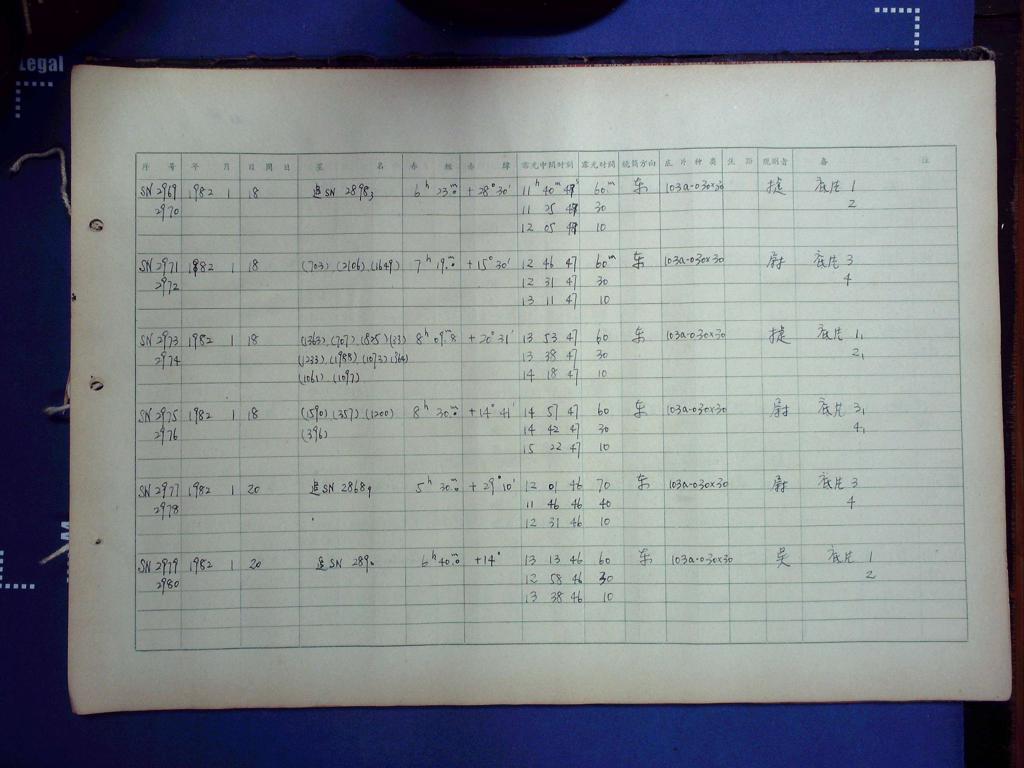 Legal
序 号 年 月 日 期 日 星 名 赤 经 赤 纬 露光中间时刻 露光时间 镜筒方向 底片种类 观测者 备 注
SN 2969 1982 1 18 追SN 2898₃ 6ʰ 23ᵐ.0 +28°30′ 11ʰ 40ᵐ 60ᵐ 东 103a-O 30×30 捷 底片 1
2970 11 25 30 2
12 05 10
SN 2971 1982 1 18 (703), (2106), (1649) 7ʰ 19ᵐ.0 +15°30′ 12 46 47 60ᵐ 东 103a-O 30×30 尉 底片 3
2972 12 31 47 30 4
13 11 47 10
SN 2973 1982 1 18 (1363), (707), (825) (33) 8ʰ 09ᵐ.8 +20°31′ 13 53 47 60 东 103a-O 30×30 捷 底片 1₁
2974 (1233), (1988), (1073) 13 38 47 30 2₁
(1061), (1097) 14 18 47 10
SN 2975 1982 1 18 (590), (357), (1200) 8ʰ 30ᵐ.0 +14°41′ 14 57 47 60 东 103a-O 30×30 尉 底片 3₁
2976 (396) 14 42 47 30 4₁
15 22 47 10
SN 2977 1982 1 20 追SN 2868₉ 5ʰ 30ᵐ.0 +29°10′ 12 01 46 70 东 103a-O 30×30 尉 底片 3
2978 11 46 46 40 4
12 31 46 10
SN 2979 1982 1 20 追SN 289₀ 6ʰ 40ᵐ.0 +14° 13 13 46 60 东 103a-O 30×30 吴 底片 1
2980 12 58 46 30 2
13 38 46 10